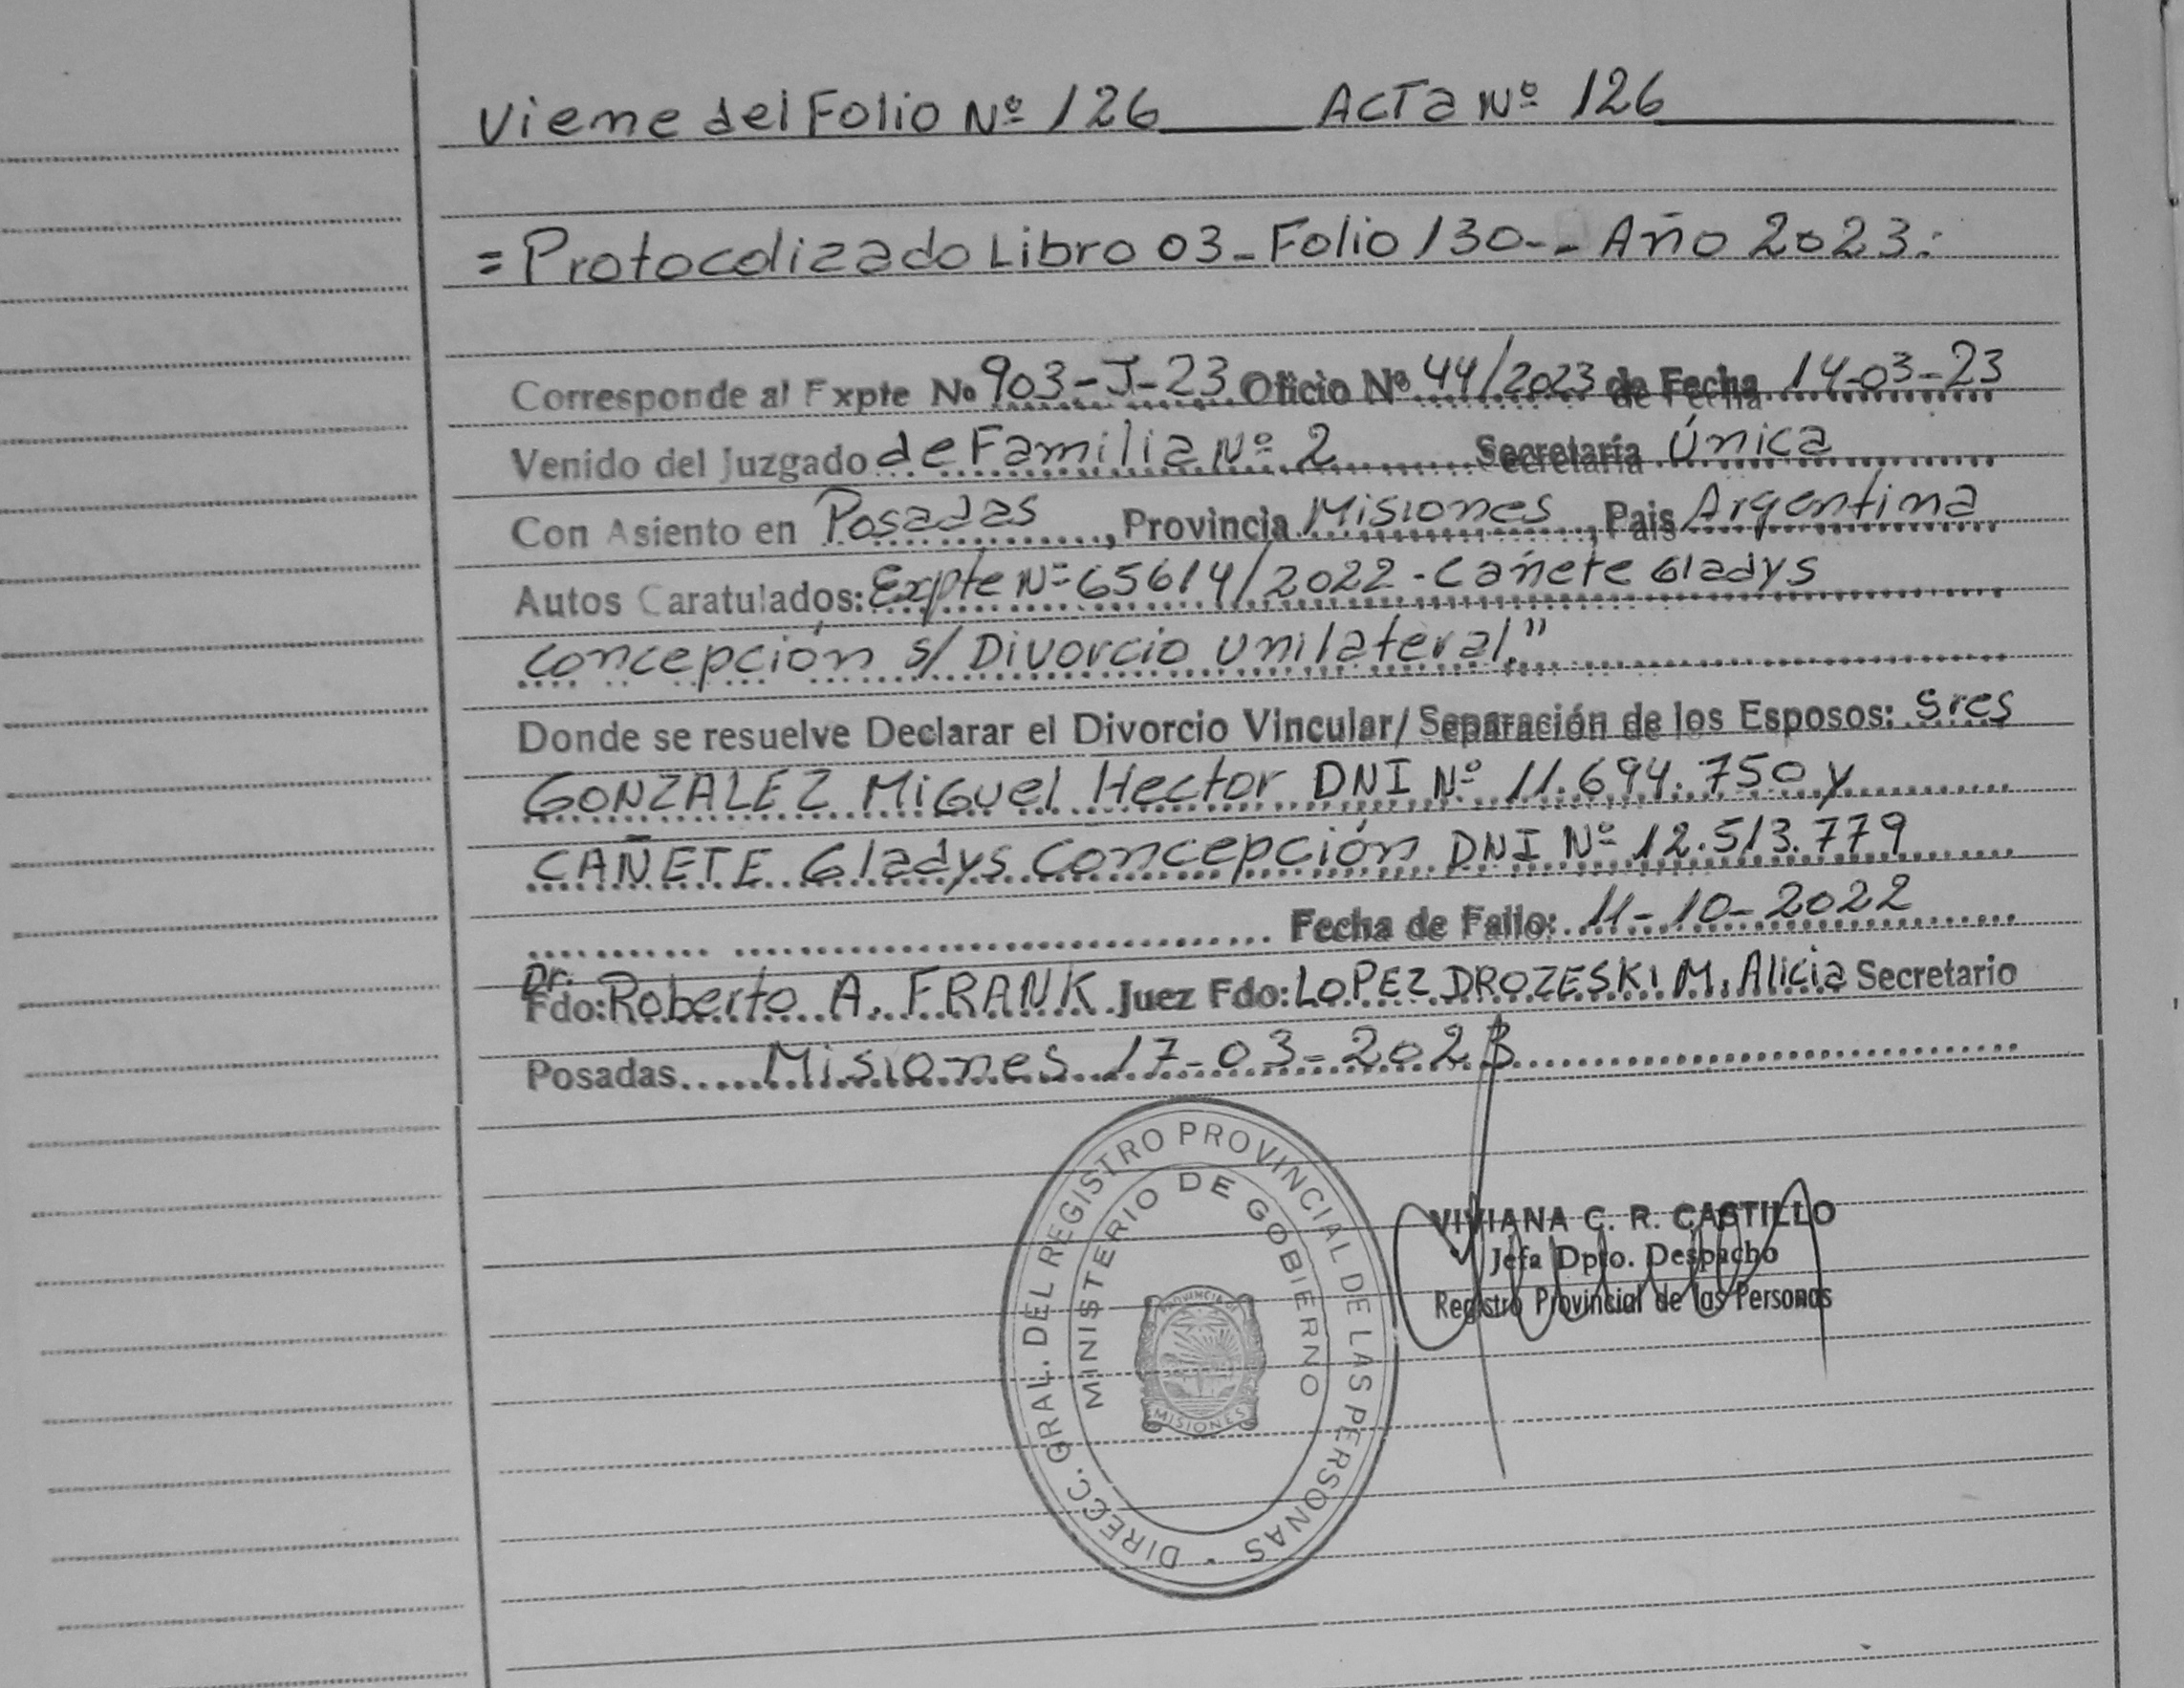 Viene del Folio Nº 126 Acta Nº 126
= Protocolizado Libro 03 - Folio 130 - - Año 2023.-
Corresponde al Expte No 903-J-23 Oficio Nº 44/2023 de Fecha 14-03-23
Venido del Juzgado de Familia Nº 2 Secretaría Única
Con Asiento en Posadas, Provincia Misiones, Pais Argentina
Autos Caratulados: Expte Nº 65614/2022 - Cañete Gladys
Concepción s/ Divorcio Unilateral."
Donde se resuelve Declarar el Divorcio Vincular/ Separación de los Esposos: Sres
GONZALEZ Miguel Hector DNI Nº 11.694.750 y
CAÑETE Gladys Concepción DNI Nº 12.513.779
Fecha de Fallo: 11-10-2022
Dr.
Fdo: Roberto A. FRANK Juez Fdo: LOPEZ DROZESKI M. Alicia Secretario
Posadas Misiones 17-03-2023
DIRECC. GRAL. DEL REGISTRO PROVINCIAL DE LAS PERSONAS
MINISTERIO DE GOBIERNO
PROVINCIA DE
MISIONES
VIVIANA C. R. CASTILLO
Jefa Dpto. Despacho
Registro Provincial de las Personas